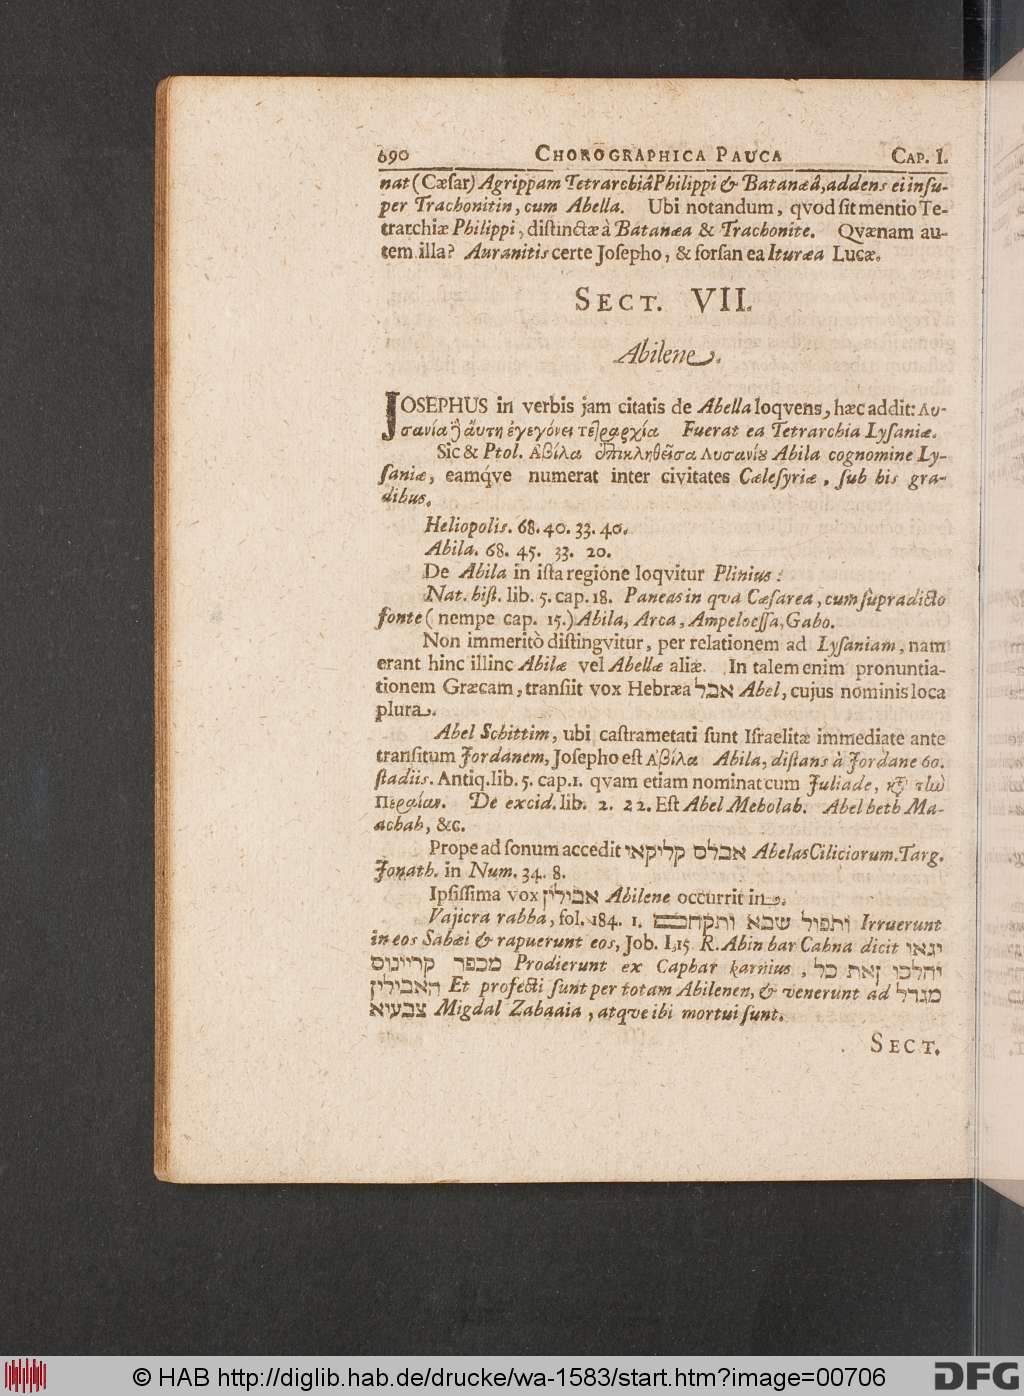 690 CHOROGRAPHICA PAUCA CAP. I.
nat (Cæſar) Agrippam Tetrarchiâ Philippi & Batanæâ, addens ei inſu-
per Trachonitin, cum Abella. Ubi notandum, qvod ſit mentio Te-
trarchiæ Philippi, diſtinctæ à Batanæa & Trachonite. Qvænam au-
tem illa? Auranitis certe Joſepho, & forſan ea Ituræa Lucæ.
SECT. VII.
Abilene.
JOSEPHUS in verbis jam citatis de Abella loqvens, hæc addit: Λυ-
σανία δ᾽ ἄυτη ἐγεγόνει τετραρχία Fuerat ea Tetrarchia Lyſaniæ.
Sic & Ptol. Αβίλα ἐπικληθεῖσα Λυσανίου Abila cognomine Ly-
ſaniæ, eamq́ve numerat inter civitates Cæleſyriæ, ſub his gra-
dibus.
Heliopolis. 68. 40. 33. 40.
Abila. 68. 45. 33. 20.
De Abila in iſta regione loqvitur Plinius:
Nat. hiſt. lib. 5. cap. 18. Paneas in qva Cæſarea, cum ſupradicto
fonte (nempe cap. 15.) Abila, Arca, Ampeloeſſa, Gabo.
Non immeritò diſtingvitur, per relationem ad Lyſaniam, nam
erant hinc illinc Abilæ vel Abellæ aliæ. In talem enim pronuntia-
tionem Græcam, tranſiit vox Hebræa אבל Abel, cujus nominis loca
plura.
Abel Schittim, ubi caſtrametati ſunt Iſraelitæ immediate ante
tranſitum Jordanem, Joſepho eſt Αβίλα Abila, diſtans à Jordane 60.
ſtadiis. Antiq. lib. 5. cap. 1. qvam etiam nominat cum Juliade, κατὰ τὴν
Περαίαν. De excid. lib. 2. 22. Eſt Abel Meholah. Abel beth Ma-
achah, &c.
Prope ad ſonum accedit אבלס קליקאי Abelas Ciliciorum. Targ.
Jonath. in Num. 34. 8.
Ipſiſſima vox אבולין Abilene occurrit in
Vajicra rabba, fol. 184. 1. ותפול שבא ותקחם Irruerunt
in eos Sabæi & rapuerunt eos, Job. I, 15 R. Abin bar Cahna dicit יגאו
מכפר קריינוס Prodierunt ex Caphar karnius, יהלכו זאת כל
האבולין Et profecti ſunt per totam Abilenen, & venerunt ad מגדל
צבעיא Migdal Zabaaia, atqve ibi mortui ſunt.
SECT.
© HAB http://diglib.hab.de/drucke/wa-1583/start.htm?image=00706
DFG